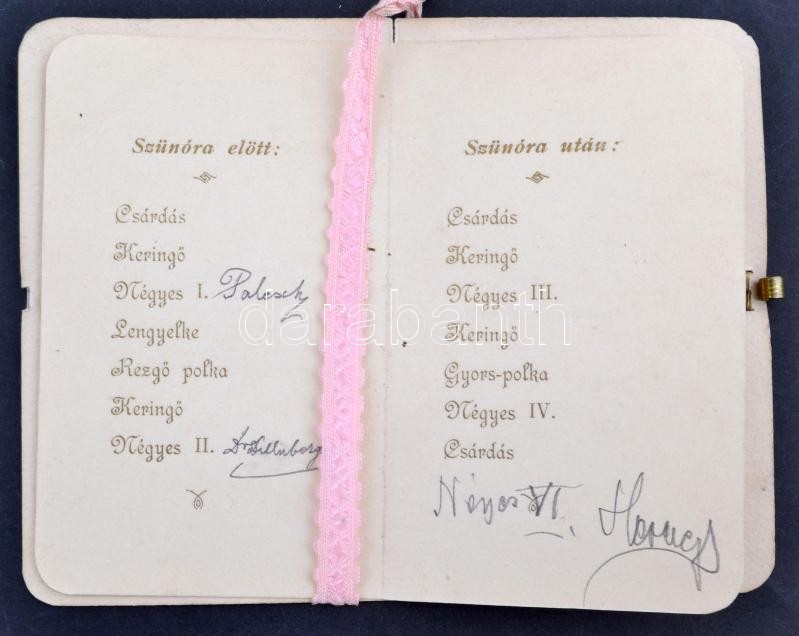 Szünóra elött:
Csárdás
Keringő
Négyes I. Palcsek
Lengyelke
Rezgő polka
Keringő
Négyes II. Dr
Szünóra után:
Csárdás
Keringő
Négyes III.
Keringő
Gyors-polka
Négyes IV.
Csárdás
Négyes VI.
darabanth